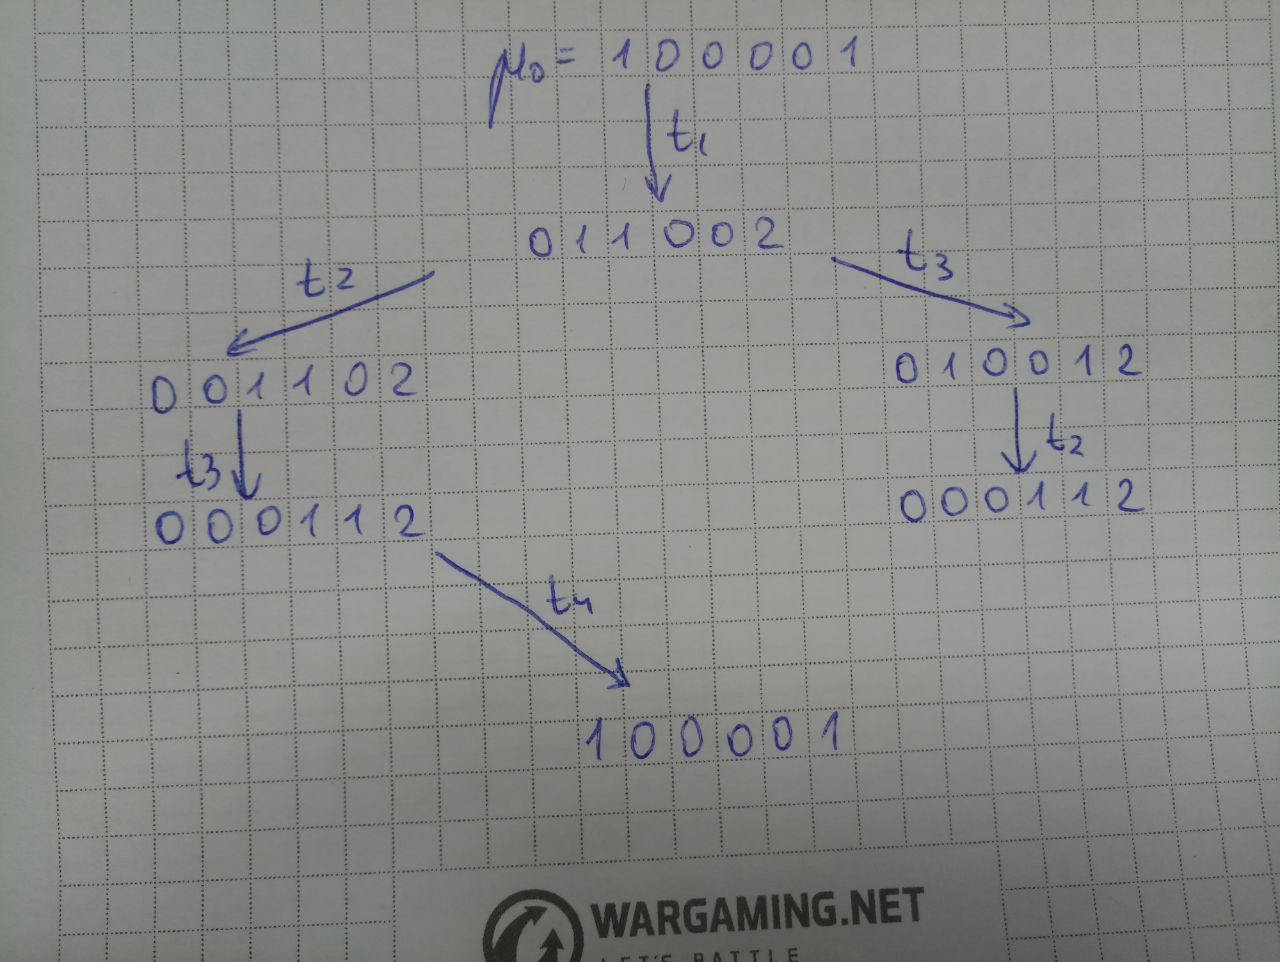 μ₀ = 1 0 0 0 0 1
t₁
0 1 1 0 0 2
t₂
t₃
0 0 1 1 0 2
0 1 0 0 1 2
t₃
t₂
0 0 0 1 1 2
0 0 0 1 1 2
t₄
1 0 0 0 0 1
WARGAMING.NET
LET'S BATTLE